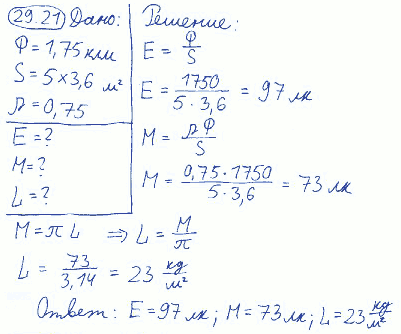 29.21 Дано:
Ф = 1,75 клм
S = 5 × 3,6 м²
ρ = 0,75
E = ?
M = ?
L = ?
Решение:
E = Ф/S
E = 1750/(5 · 3,6) = 97 лк
M = ρФ/S
M = (0,75 · 1750)/(5 · 3,6) = 73 лк
M = π L ⇒ L = M/π
L = 73/3,14 = 23 кд/м²
Ответ: E = 97 лк; M = 73 лк; L = 23 кд/м²